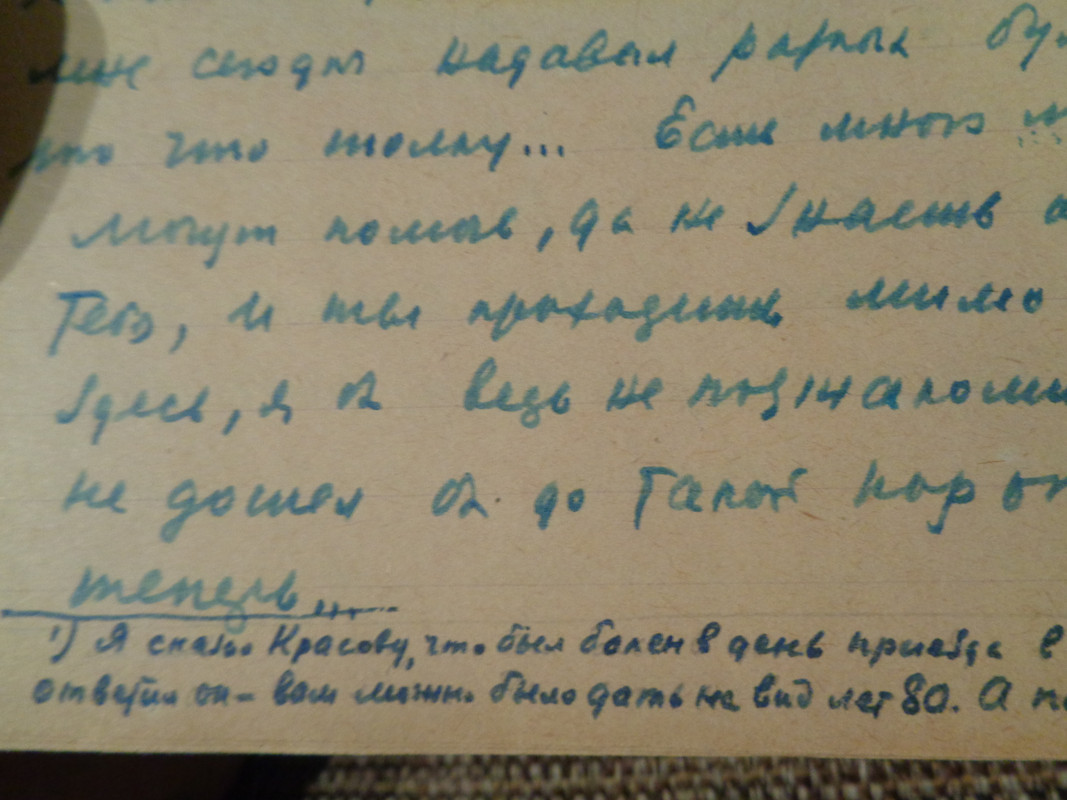 мне сюды надавал разных бу
но что толку... Если много
могут помочь, да не знаешь
Тебя, и ты проходишь мимо
здесь, я б ведь не познакоми
не дошел б до такой
теперь...
1) Я сказал Красову, что был болен в день приезда в
ответил он – вам можно было дать на вид лет 80. А